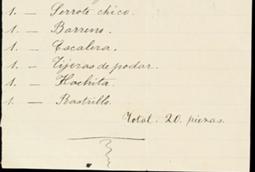 1. — Serrote chico.
1. — Barreno.
1. — Escalera.
1. — Tijeras de podar.
1. — Hachita.
1. — Rastrillo.
Total: 20. piezas.